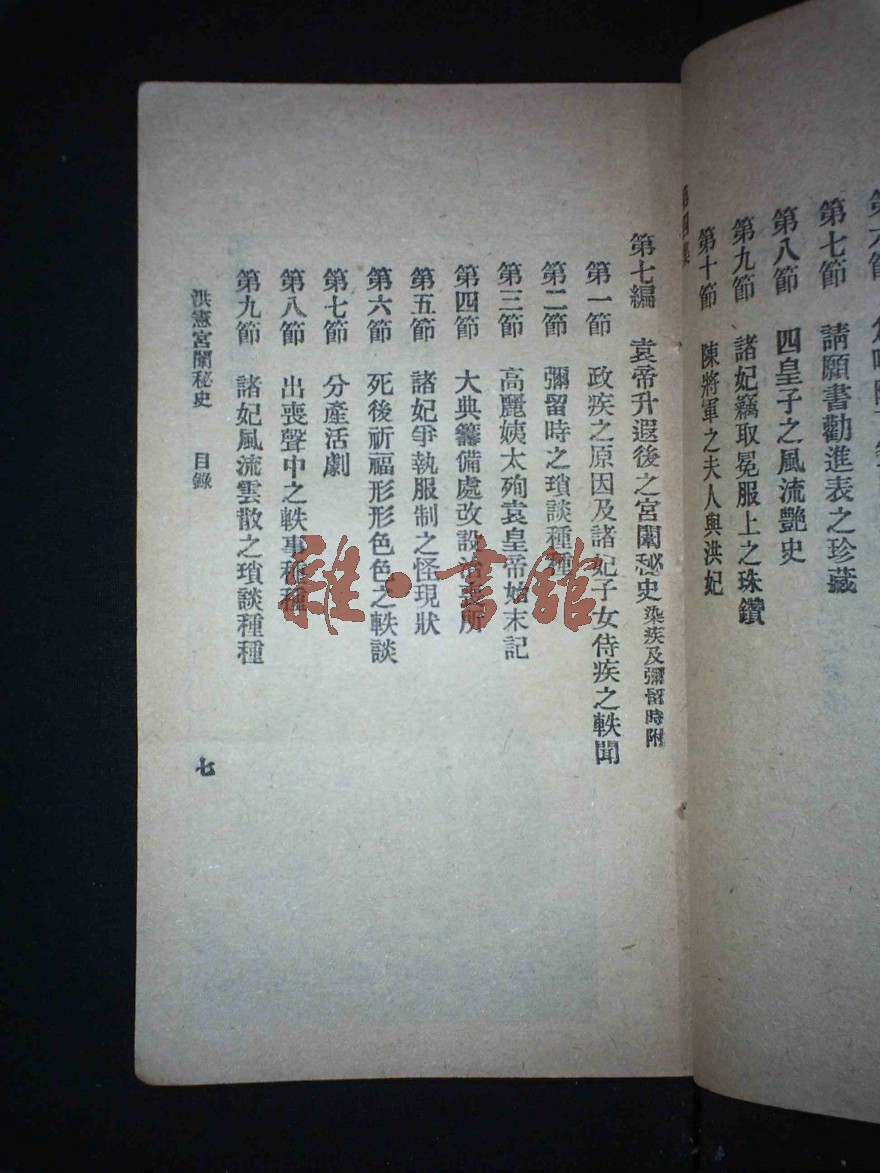 第七節　請願書勸進表之珍藏
第八節　四皇子之風流艷史
第九節　諸妃竊取冕服上之珠鑽
第十節　陳將軍之夫人與洪妃
第四集
第七編　袁帝升遐後之宮闈秘史染疾及彌留時附
第一節　政疾之原因及諸妃子女侍疾之軼聞
第二節　彌留時之瑣談種種
第三節　高麗姨太殉袁皇帝始末記
第四節　大典籌備處改設治喪所
第五節　諸妃爭執服制之怪現狀
第六節　死後祈福形形色色之軼談
第七節　分產活劇
第八節　出喪聲中之軼事種種
第九節　諸妃風流雲散之瑣談種種
洪憲宮闈秘史　目錄
七
雜·書館